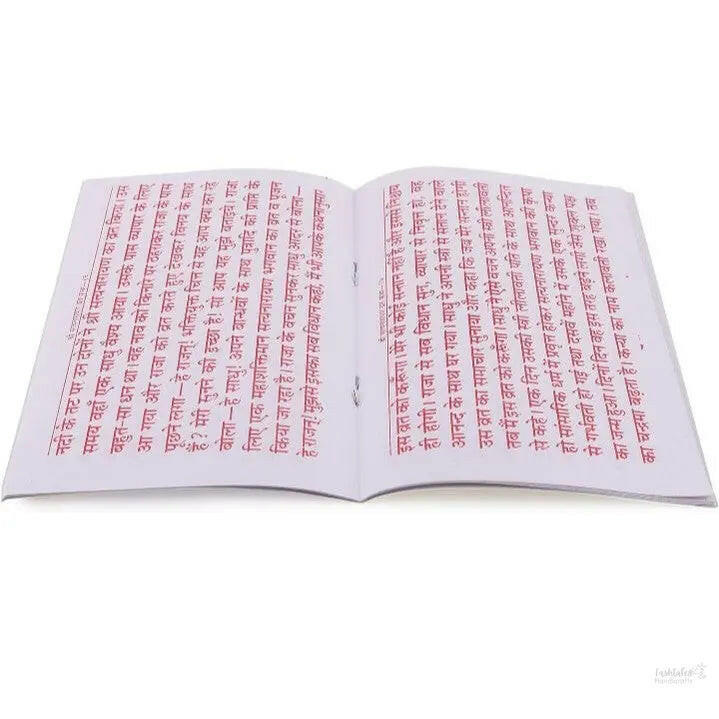 श्री सत्यनारायण व्रत कथा
नदी के तट पर उन दोनों ने श्री सत्यनारायण का व्रत किया। उस
समय वहाँ एक साधु वैश्य आया। उसके पास व्यापार के लिए
बहुत-सा धन था। वह नाव को किनारे पर ठहराकर राजा के पास
आ गया और राजा को व्रत करते हुए देखकर विनय के साथ
पूछने लगा—हे राजन्! भक्तियुक्त चित्त से यह आप क्या कर रहे
हैं? मेरी सुनने की इच्छा है! सो आप यह मुझे बताइये। राजा
बोला—हे साधु! अपने बान्धवों के साथ पुत्रादि की प्राप्ति के
लिए एक महाशक्तिमान सत्यनारायण भगवान का व्रत व पूजन
किया जा रहा है। राजा के वचन सुनकर साधु आदर से बोला—
हे राजन्! मुझसे इसका सब विधान कहो, मैं भी आपके कथनानुसार
श्री सत्यनारायण व्रत कथा
इस व्रत को करूँगा। मेरे भी कोई सन्तान नहीं है और इससे निश्चय
ही होगी। राजा से सब विधान सुन, व्यापार से निवृत्त हो, वह
आनन्द के साथ घर गया। साधु ने अपनी स्त्री से सन्तान देने वाले
उस व्रत का समाचार सुनाया और कहा कि जब मेरे सन्तान होगी
तब मैं इस व्रत को करूँगा। साधु ने ऐसे वचन अपनी स्त्री लीलावती
से कहे। एक दिन उसकी स्त्री लीलावती पति के साथ आनन्दित
हो सांसारिक धर्म में प्रवृत्त होकर सत्यनारायण भगवान की कृपा
से गर्भवती हो गई तथा दसवें महीने में उसके एक सुन्दर कन्या
का जन्म हुआ। दिनों दिन वह इस तरह बढ़ने लगी जैसे शुक्ल पक्ष
का चन्द्रमा बढ़ता है। कन्या का नाम कलावती रखा गया। तब
Handicrafts